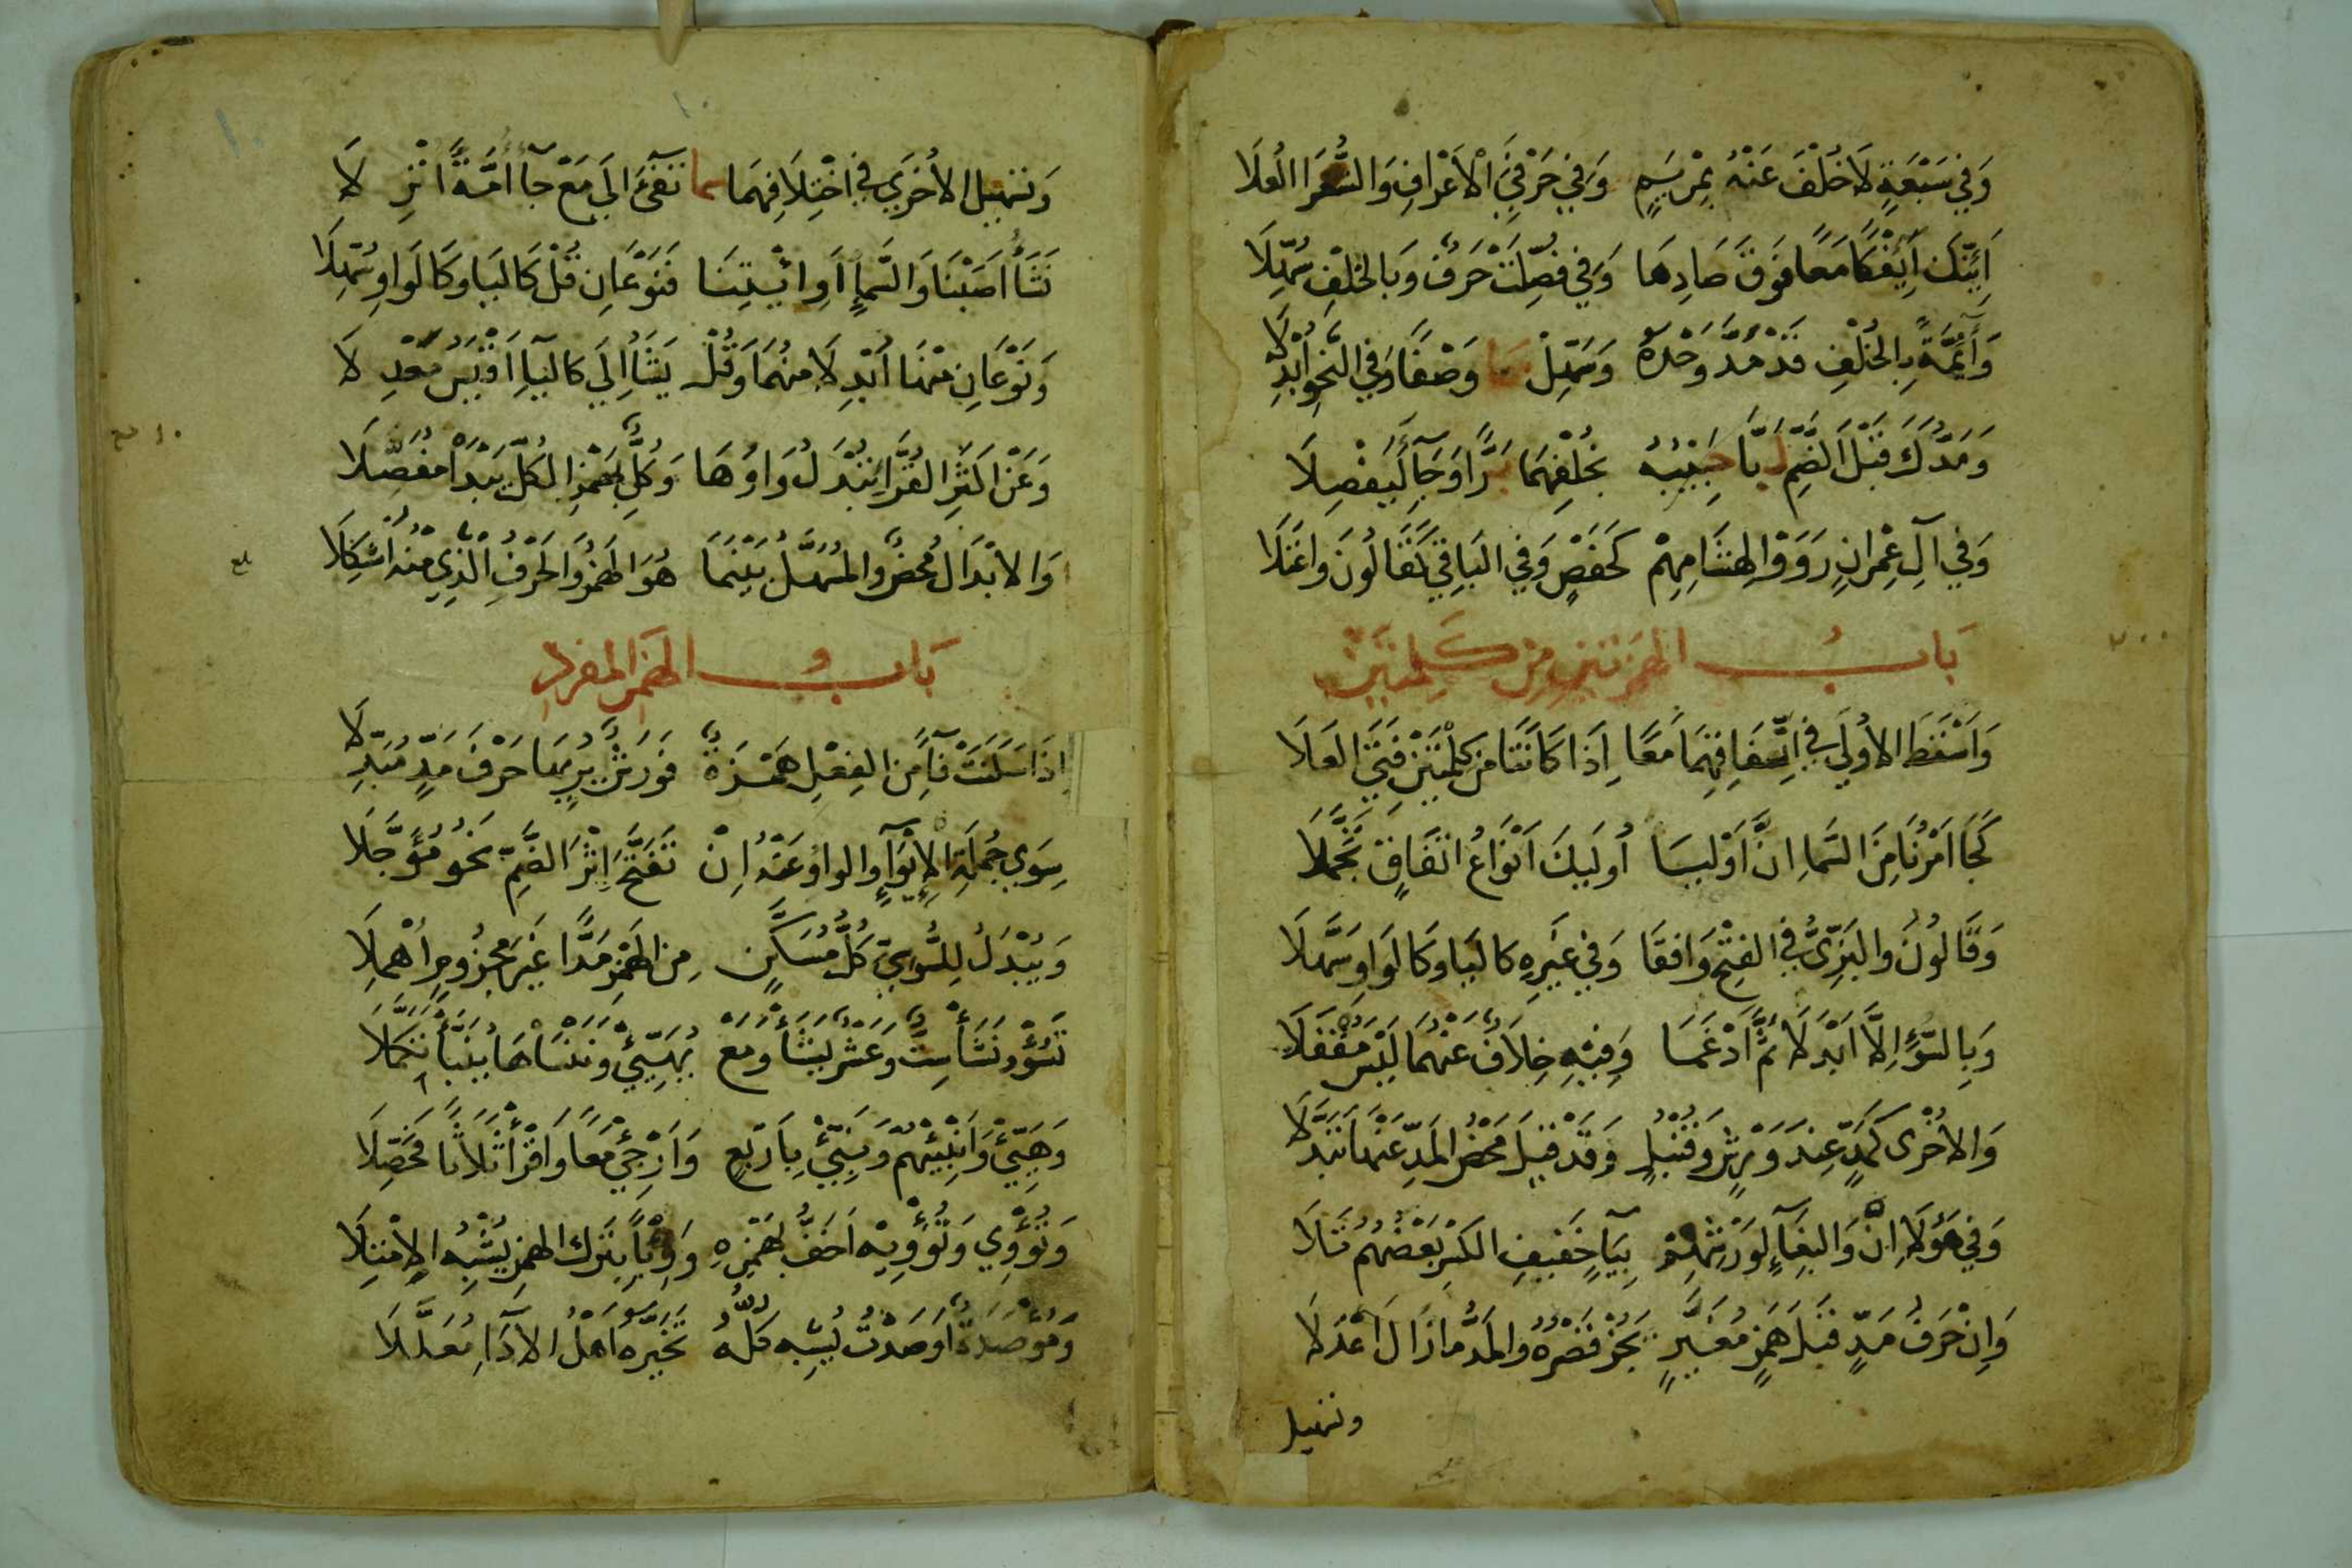 وَفِي سَبْعَةٍ لَا خُلْفَ عَنْهُ بِمَرْيَمٍ وَفِي حَرْفَيِ الْأَعْرَافِ وَالشُّعَرَا الْعُلَا
أَئِنَّكَ أَئِفْكًا مَعًا فَوْقَ صَادِهَا وَفِي فُصِّلَتْ حَرْفٌ وَبِالْخُلْفِ سُهِّلَا
وَآئِمَّةً بِالْخُلْفِ قَدْ مَدَّ وَحْدَهُ وَسَهِّلْ سَمَا وَصْفًا وَفِي النَّحْوِ أُبْدِلَا
وَمَدُّكَ قَبْلَ الضَّمِّ لَبَّا حَبِيبُهُ بِخُلْفِهِمَا بَرًّا وَجَاءَ لِيَفْصِلَا
وَفِي آلِ عِمْرَانٍ رَوَوْا لِهِشَامِهِمْ كَحَفْصٍ وَفِي الْبَاقِي كَقَالُونَ وَاعْتَلَا
بَابُ الهمزتين من كلمتين
وَأَسْقَطَ الْأُولَى فِي اتِّفَاقِهِمَا مَعًا إِذَا كَانَتَا مِنْ كِلْمَتَيْنِ فَتَى الْعَلَا
كَجَا أَمْرُنَا مِنَ السَّمَاءِ إِنَّ أَوْلِيَا أُولَئِكَ أَنْوَاعُ اتِّفَاقٍ تَجَمَّلَا
وَقَالُونُ وَالْبَزِّيُّ فِي الْفَتْحِ وَافَقَا وَفِي غَيْرِهِ كَالْيَا وَكَالْوَاوِ سَهَّلَا
وَبِالسُّوءِ إِلَّا أَبْدَلَا ثُمَّ أَدْغَمَا وَفِيهِ خِلَافٌ عَنْهُمَا لَيْسَ مُقْفَلَا
وَالْأُخْرَى كَمَدٍّ عِنْدَ وَرْشٍ وَقُنْبُلٍ وَقَدْ قِيلَ مَحْضُ الْمَدِّ عَنْهَا تَبَدَّلَا
وَفِي هَؤُلَا إِنْ وَالْبِغَاءِ إِنْ لِوَرْشِهِمْ بِيَاءٍ خَفِيفِ الْكَسْرِ بَعْضُهُمْ تَلَا
وَإِنْ حَرْفُ مَدٍّ قَبْلَ هَمْزٍ مُغَيَّرٍ يَجُزْ قَصْرُهُ وَالْمَدُّ مَا زَالَ أَعْدَلَا
وتسهيل
وَتَسْهِيلُ الْأُخْرَى فِي اخْتِلَافِهِمَا سما تَفِيءَ إِلَى مَعْ جَاءَ أُمَّةً انْزِلَا
نَشَاءُ أَصَبْنَا وَالسَّمَاءِ أَوِ ائْتِنَا فَنَوْعَانِ قُلْ كَالْيَا وَكَالْوَاوِ سُهِّلَا
وَنَوْعَانِ مِنْهَا أُبْدِلَا مِنْهُمَا وَقُلْ يَشَاءُ إِلَى كَالْيَاءِ أَقْيَسُ مَعْدِلَا
وَعَنْ أَكْثَرِ الْقُرَّاءِ تُبْدَلُ وَاوُهَا وَكُلٌّ بِهَمْزِ الْكُلِّ يَبْدَا مُفَصِّلَا
وَالْإِبْدَالُ مَحْضٌ وَالْمُسَهَّلُ بَيْنَمَا هُوَ الْهَمْزُ وَالْحَرْفِ الَّذِي مِنْهُ أُشْكِلَا
بَابُ الهمز المفرد
إِذَا سَكَنَتْ فَاءً مِنَ الْفِعْلِ هَمْزَةٌ فَوَرْشٌ يُرِيهَا حَرْفَ مَدٍّ مُبَدِّلَا
سِوَى جُمْلَةِ الْإِيوَاءِ وَالْوَاوُ عَنْهُ إِنْ تَفَتَّحَ إِثْرَ الضَّمِّ نَحْوُ مُؤَجَّلَا
وَيُبْدَلُ لِلسُّوسِيِّ كُلُّ مُسَكَّنٍ مِنَ الْهَمْزِ مَدًّا غَيْرَ مَجْزُومٍ أُهْمِلَا
تَسُؤْ وَنَشَأْ سِتٌّ وَعَشْرُ يَشَأْ وَمَعْ يُهَيِّئْ وَنَنْسَأْهَا يُنَبَّأْ تَكَمَّلَا
وَهَيِّئْ وَأَنْبِئْهُمْ وَنَبِّئْ بِأَرْبَعٍ وَأَرْجِئْ مَعًا وَاقْرَأْ ثَلَاثًا فَحَصِّلَا
وَتُؤْوِي وَتُؤْوِيهِ أَخَفُّ بِهَمْزِهِ وَرِئْيًا بِتَرْكِ الْهَمْزِ يُشْبِهُ الِامْتِلَا
وَمُؤْصَدَةٌ أَوْصَدْتُ يُشْبِهُ كُلُّهُ تَخَيَّرَهُ أَهْلُ الْأَدَاءِ مُعَلَّلَا